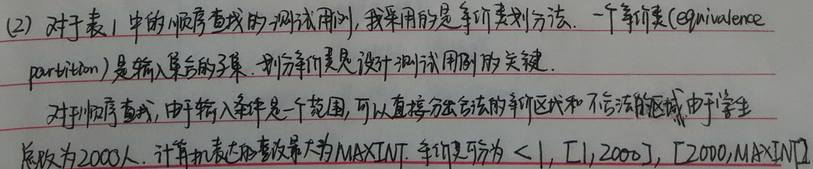 (2) 对于表1中的顺序查找的测试用例,我采用的是等价类划分方法. 一个等价类(equivalence
partition)是输入集合的子集.划分等价类是设计测试用例的关键.
对于顺序查找,由于输入条件是一个范围,可以直接分出合法的等价区域和不合法的区域,由于学生
总数为2000人.计算机表达的整数最大为MAXINT.等价类可分为<1,[1,2000],[2000,MAXINT]